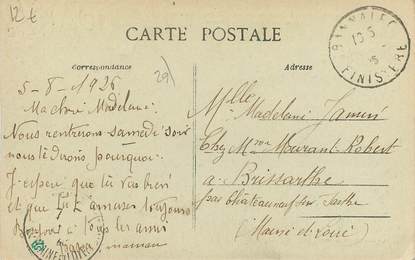 12 €
CARTE POSTALE
Correspondance
Adresse
29
BANNALEC
FINISTÈRE
5-8-1926
Ma chère Madelaine
Nous rentrerons samedi soir
nous te dirons pourquoi
J'espère que tu vas bien
et que tu t'amuses toujours
Bonjour à tous les amis
maman
Mlle
Madelaine
Chez Mme Mourant Robert
a. Brissarthe
par Châteauneuf sur Sarthe
(Maine et Loire)